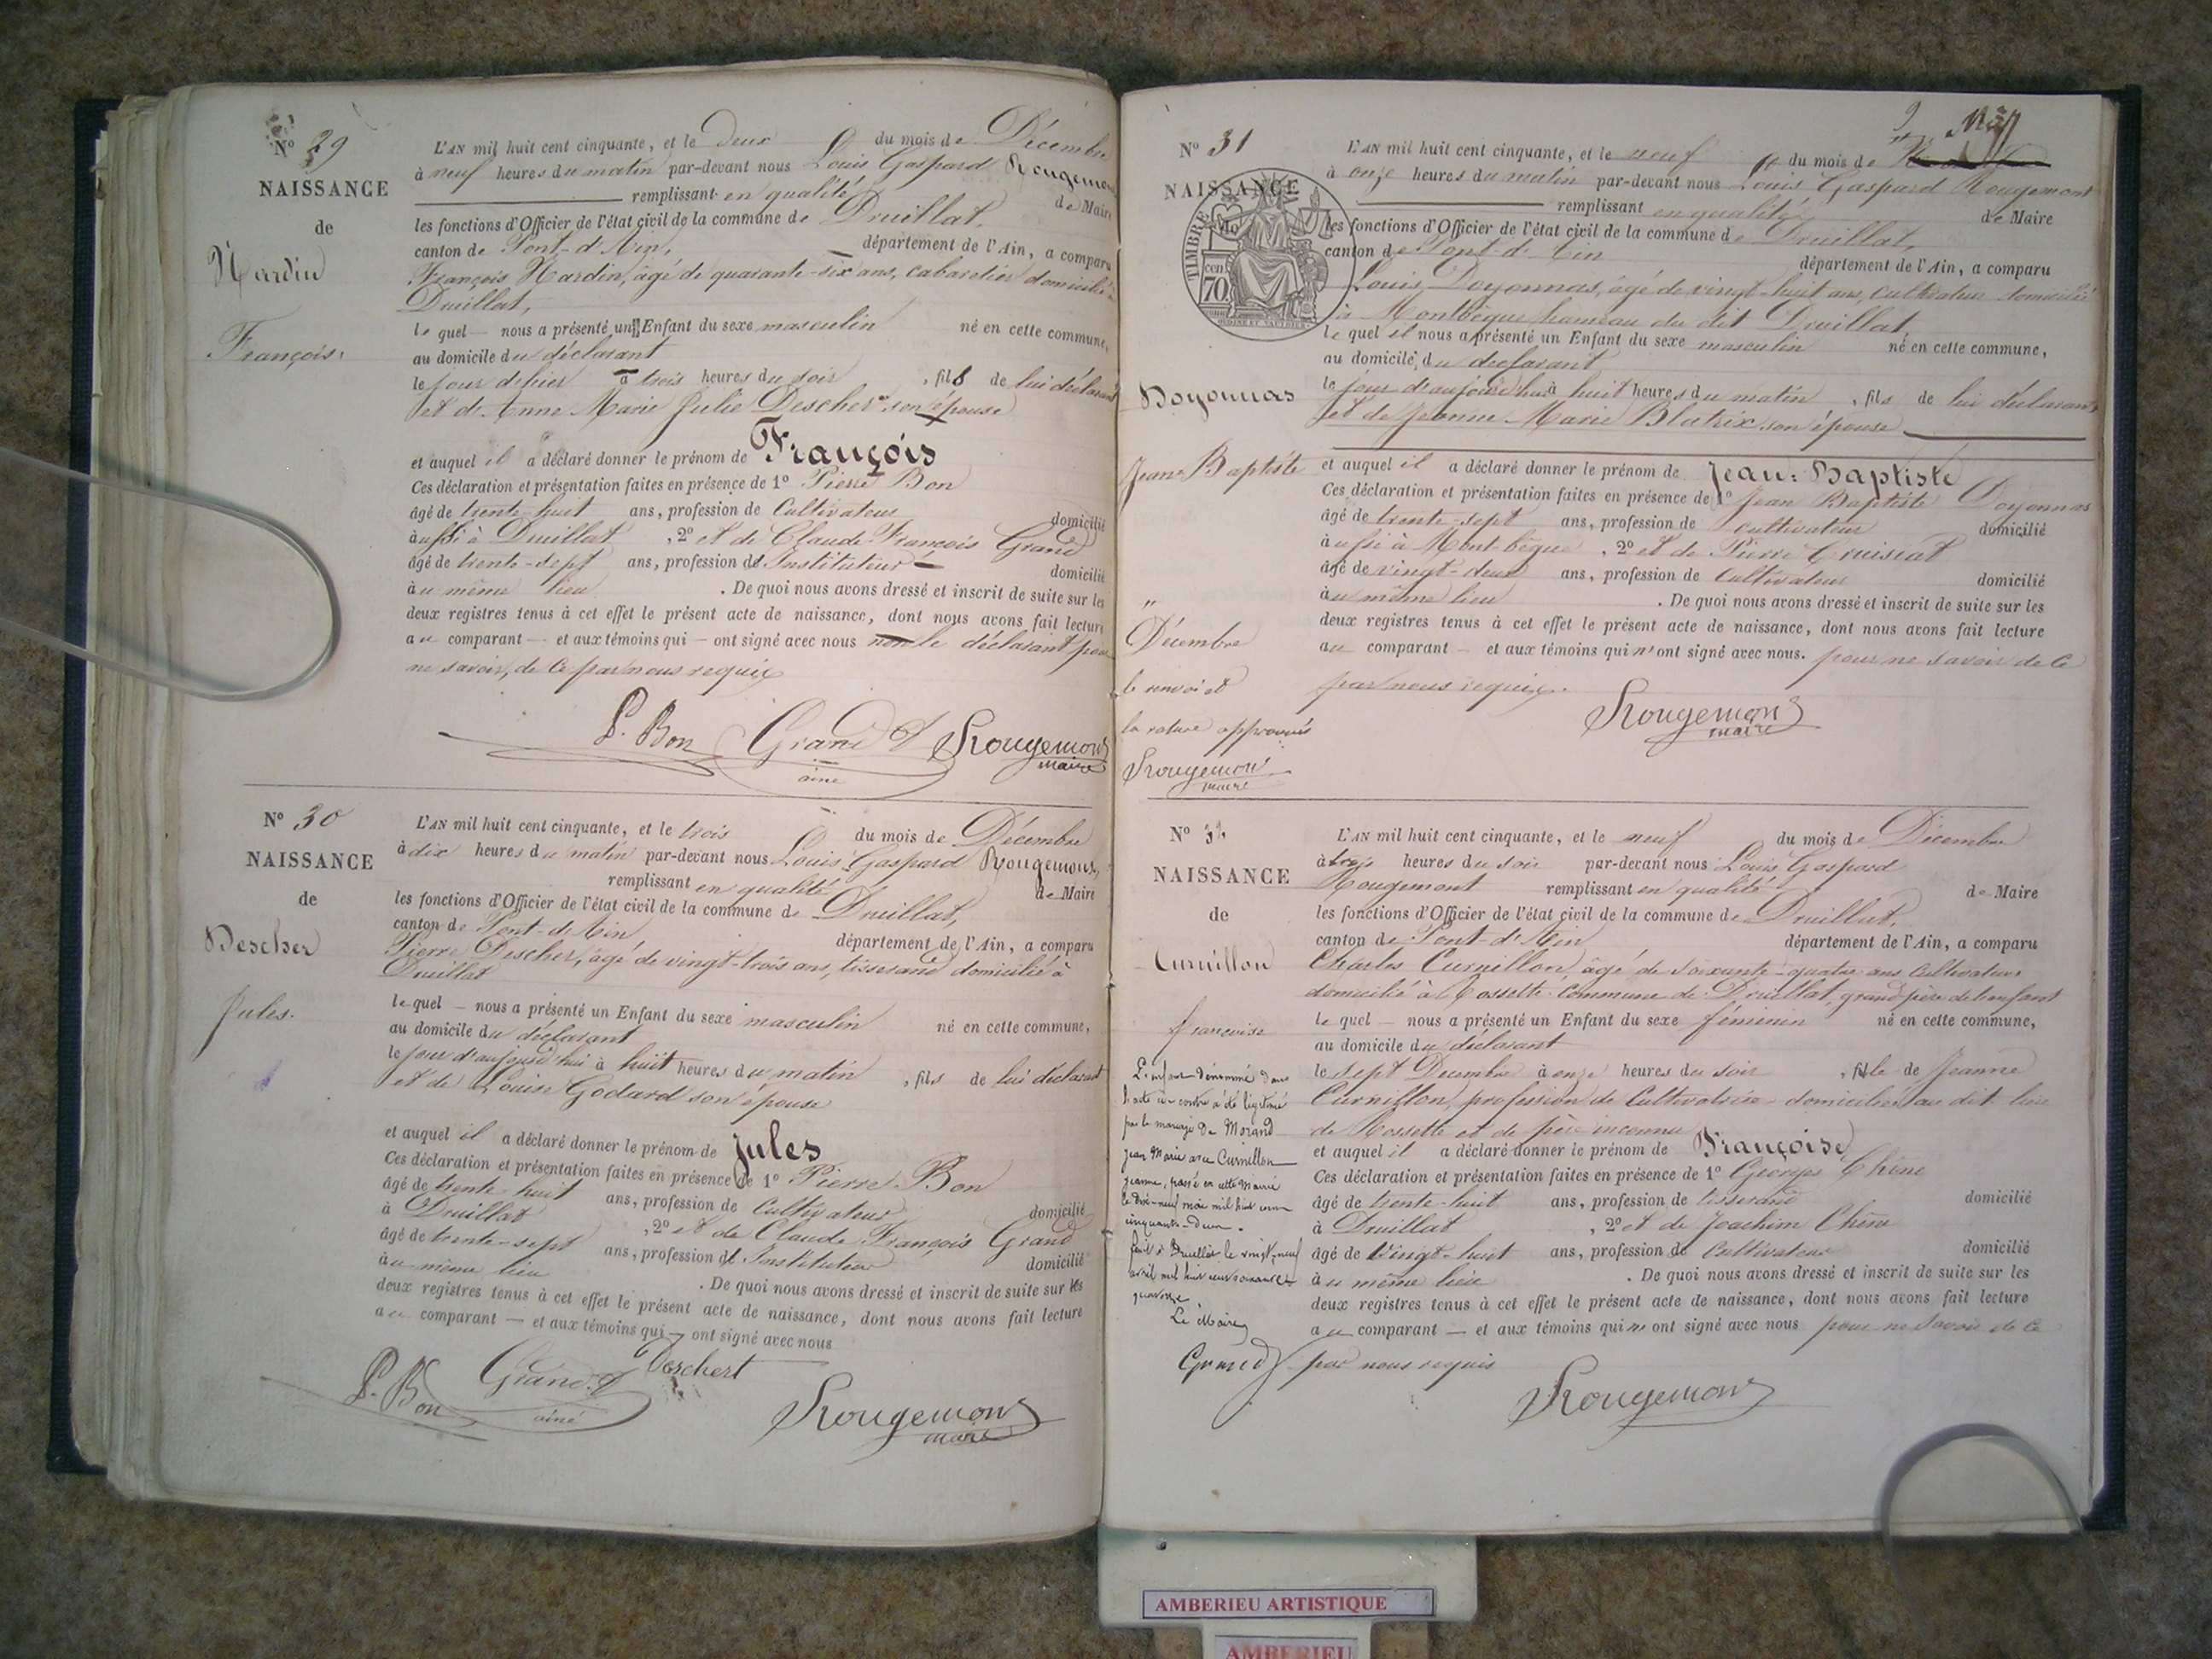 Nº 29
NAISSANCE
de
Nardin
François.
L'AN mil huit cent cinquante, et le Deux du mois de Décembre
à neuf heures du matin par-devant nous Louis Gaspard Rougemont
remplissant en qualité de Maire
les fonctions d'Officier de l'état civil de la commune de Druillat,
canton de Pont-d'Ain, département de l'Ain, a comparu
François Nardin, âgé de quarante-six ans, cabaretier domicilié à
Druillat,
le quel — nous a présenté un Enfant du sexe masculin né en cette commune,
au domicile du déclarant
le jour d'hier à trois heures du soir, fils de lui déclarant
et de Anne Marie Julie Descher son épouse
et auquel il a déclaré donner le prénom de François
Ces déclaration et présentation faites en présence de 1º Pierre Bon
âgé de trente-huit ans, profession de Cultivateur domicilié
aussi à Druillat, 2º et de Claude François Grand
âgé de trente-sept ans, profession d'Instituteur domicilié
au même lieu. De quoi nous avons dressé et inscrit de suite sur les
deux registres tenus à cet effet le présent acte de naissance, dont nous avons fait lecture
au comparant — et aux témoins qui — ont signé avec nous non le déclarant pour
ne savoir, de ce par nous requis
P. Bon Grand aîné Rougemont maire
Nº 30
NAISSANCE
de
Descher
Jules.
L'AN mil huit cent cinquante, et le trois du mois de Décembre
à dix heures du matin par-devant nous Louis Gaspard Rougemont,
remplissant en qualité de Maire
les fonctions d'Officier de l'état civil de la commune de Druillat,
canton de Pont-d'Ain département de l'Ain, a comparu
Pierre Descher, âgé de vingt-trois ans, tisserand domicilié à
Druillat
le quel — nous a présenté un Enfant du sexe masculin né en cette commune,
au domicile du déclarant
le jour d'aujourd'hui à huit heures du matin, fils de lui déclarant
et de Louise Godard son épouse
et auquel il a déclaré donner le prénom de Jules
Ces déclaration et présentation faites en présence de 1º Pierre Bon
âgé de trente-huit ans, profession de Cultivateur domicilié
à Druillat, 2º et de Claude François Grand
âgé de trente-sept ans, profession d'Instituteur domicilié
au même lieu. De quoi nous avons dressé et inscrit de suite sur les
deux registres tenus à cet effet le présent acte de naissance, dont nous avons fait lecture
au comparant — et aux témoins qui — ont signé avec nous
P. Bon Grand aîné Deschert Rougemont maire
Nº 31
NAISSANCE
TIMBRE
cen
70
Doyonnas
Jean-Baptiste
"
Décembre
le renvoi et
la rature approuvés
Rougemont
maire
L'AN mil huit cent cinquante, et le neuf du mois de
à onze heures du matin par-devant nous Louis Gaspard Rougemont
remplissant en qualité de Maire
les fonctions d'Officier de l'état civil de la commune de Druillat,
canton de Pont-d'Ain département de l'Ain, a comparu
Louis Doyonnas, âgé de vingt-huit ans, cultivateur domicilié
à Montbègue hameau du dit Druillat,
le quel il nous a présenté un Enfant du sexe masculin né en cette commune,
au domicile du déclarant
le jour d'aujourd'hui à huit heures du matin, fils de lui déclarant
et de Jeanne-Marie Blatrix son épouse
et auquel il a déclaré donner le prénom de Jean-Baptiste
Ces déclaration et présentation faites en présence de 1º Jean Baptiste Doyonnas
âgé de trente-sept ans, profession de cultivateur domicilié
aussi à Montbègue, 2º et de Pierre Cruiseat
âgé de vingt-deux ans, profession de Cultivateur domicilié
au même lieu. De quoi nous avons dressé et inscrit de suite sur les
deux registres tenus à cet effet le présent acte de naissance, dont nous avons fait lecture
au comparant — et aux témoins qui n'ont signé avec nous. pour ne savoir de ce
par nous requis.
Rougemont
maire
Nº 32
NAISSANCE
de
Curnillon
françoise
L'enfant dénommé dans
l'acte ci-contre a été légitimé
par le mariage de Morand
Jean Marie avec Curnillon
Jeanne, passé en cette Mairie
le dix-neuf mai mil huit cent
cinquante-deux.
fait à Druillat le vingt-neuf
avril mil huit cent soixante-
quatorze
Le Maire
Grand
L'AN mil huit cent cinquante, et le neuf du mois de Décembre
à trois heures du soir par-devant nous Louis Gaspard
Rougemont remplissant en qualité de Maire
les fonctions d'Officier de l'état civil de la commune de Druillat,
canton de Pont-d'Ain département de l'Ain, a comparu
Charles Curnillon, âgé de soixante-quatre ans cultivateur
domicilié à Rossette commune de Druillat, grand-père de l'enfant
le quel — nous a présenté un Enfant du sexe féminin né en cette commune,
au domicile du déclarant
le sept Décembre à onze heures du soir, fille de Jeanne
Curnillon, profession de Cultivatrice domiciliée au dit lieu
de Rossette et de père inconnu
et auquel il a déclaré donner le prénom de Françoise
Ces déclaration et présentation faites en présence de 1º Georges Chêne
âgé de trente-huit ans, profession de tisserand domicilié
à Druillat, 2º et de Joachim Chêne
âgé de vingt-huit ans, profession de Cultivateur domicilié
au même lieu. De quoi nous avons dressé et inscrit de suite sur les
deux registres tenus à cet effet le présent acte de naissance, dont nous avons fait lecture
au comparant — et aux témoins qui n'ont signé avec nous pour ne savoir de ce
par nous requis
Rougemont
AMBERIEU ARTISTIQUE
AMBERIEU